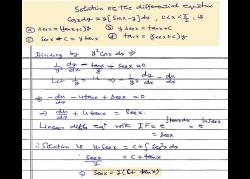 Solution of the differential equation
Cosx dy = y [Sinx - y] dx , 0 < x < π/2 , is
ⓐ secx = (tanx + c) y ⓑ y secx = tanx + c
ⓒ secx + c = y tanx ⓓ tanx = (secx + c) y
Dividing by y² Cosx dx ⇒
1/y² dy/dx - tanx/y + Secx = 0
Let 1/y = u ⇒ -1/y² dy/dx = du/dx
⇒ - du/dx - u tanx + Secx = 0
⇒ du/dx + u tanx = Secx
Linear diff. eqⁿ with IF = e^∫tanx dx
= Secx
∴ Solution is u Secx = C + ∫Sec²x dx
Secx/y = C + tanx
⇒ Secx = y (C + tanx)